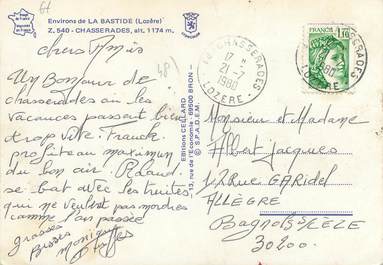 Environs de LA BASTIDE (Lozère)
Z. 540 - CHASSERADES, alt. 1174 m.
chers Amis
Un Bonjour de
chasserades ou les
vacances passent bien
trop vite. Franck
profite au maximum
du bon air. Roland
se bat avec les truites
qui ne veulent pas mordres
comme l'an passée
grosses
Bises monique
EDITIONS CELLARD
13, rue de l'Economie - 69500 BRON -
S.P.A.D.E.M.
CHASSERADES
17 H
21-7
1980
LOZERE
FRANCE
1,10
Monsieur et Madame
Albert jacques
12 Rue GARidel
ALLÈGRE
Bagnols S/CÈZE
30200.